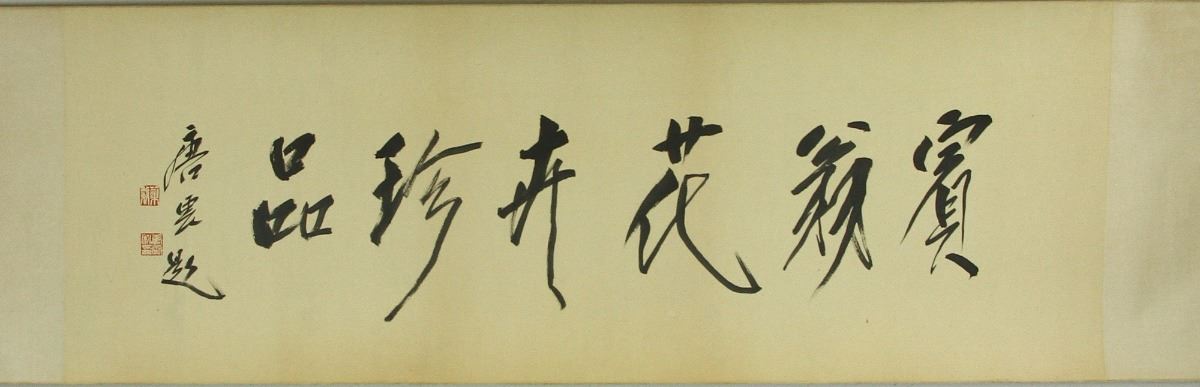 賓翁花卉珍品
唐雲題